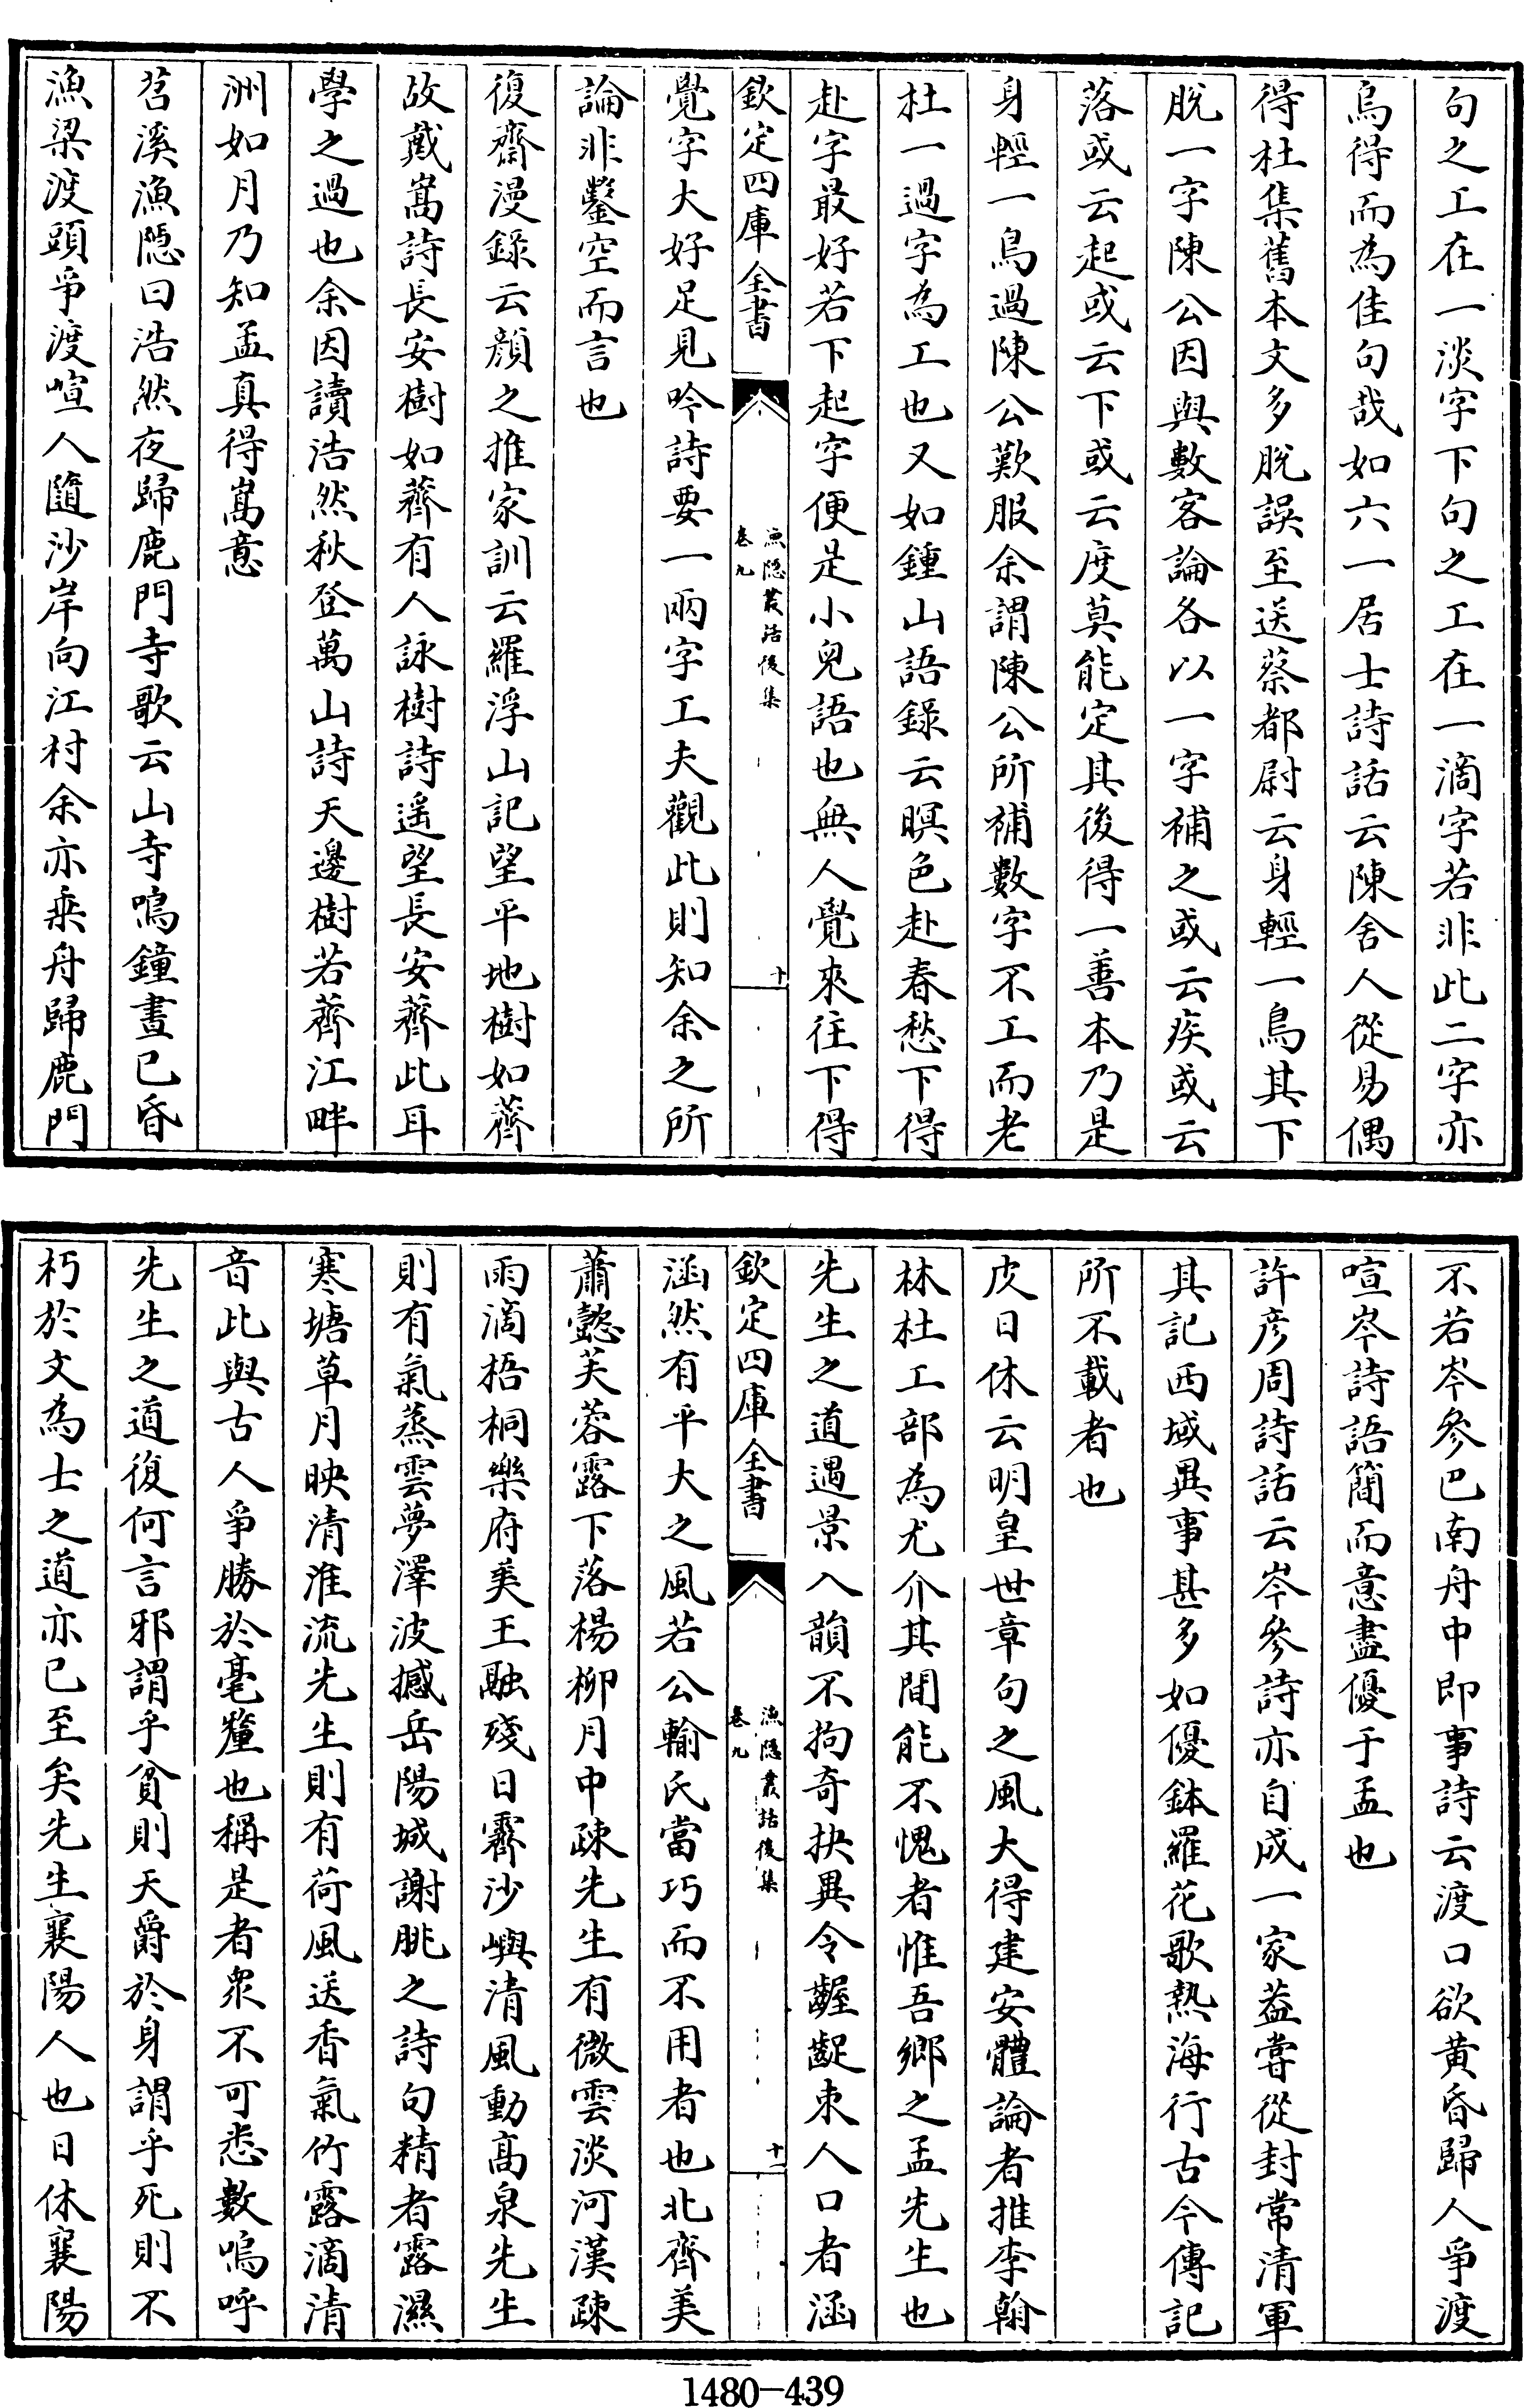 句之工在一淡字下句之工在一滴字若非此二字亦
烏得而為佳句哉如六一居士詩話云陳舍人從易偶
得杜集舊本文多脫誤至送蔡都尉云身輕一鳥其下
脫一字陳公因與數客論各以一字補之或云疾或云
落或云起或云下或云度莫能定其後得一善本乃是
身輕一鳥過陳公歎服余謂陳公所補數字不工而老
杜一過字為工也又如鍾山語錄云暝色赴春愁下得
赴字最好若下起字便是小兒語也無人覺來往下得
欽定四庫全書
漁隱叢話後集
卷九
十
覺字大好足見吟詩要一兩字工夫觀此則知余之所
論非鑿空而言也
復齋漫錄云顏之推家訓云羅浮山記望平地樹如薺
故戴嵩詩長安樹如薺有人詠樹詩遥望長安薺此耳
學之過也余因讀浩然秋登萬山詩天邊樹若薺江畔
洲如月乃知孟真得嵩意
苕溪漁隱曰浩然夜歸鹿門寺歌云山寺鳴鐘晝已昏
漁梁渡頭爭渡喧人隨沙岸向江村余亦乘舟歸鹿門
不若岑參巴南舟中即事詩云渡口欲黄昏歸人爭渡
喧岑詩語簡而意盡優于孟也
許彦周詩話云岑參詩亦自成一家葢嘗從封常清軍
其記西域異事甚多如優鉢羅花歌熱海行古今傳記
所不載者也
皮日休云明皇世章句之風大得建安體論者推李翰
林杜工部為尤介其間能不愧者惟吾鄉之孟先生也
先生之道遇景入韻不拘奇抉異令齷齪束人口者涵
欽定四庫全書
漁隱叢話後集
卷九
十一
涵然有平大之風若公輸氏當巧而不用者也北齊美
蕭懿芙蓉露下落楊柳月中疎先生有微雲淡河漢疎
雨滴梧桐樂府美王融殘日霽沙嶼清風動髙泉先生
則有氣蒸雲夢澤波撼岳陽城謝朓之詩句精者露濕
寒塘草月映清淮流先生則有荷風送香氣竹露滴清
音此與古人爭勝於毫釐也稱是者衆不可悉數嗚呼
先生之道復何言邪謂乎貧則天爵於身謂乎死則不
朽於文為士之道亦已至矣先生襄陽人也日休襄陽
1480-439